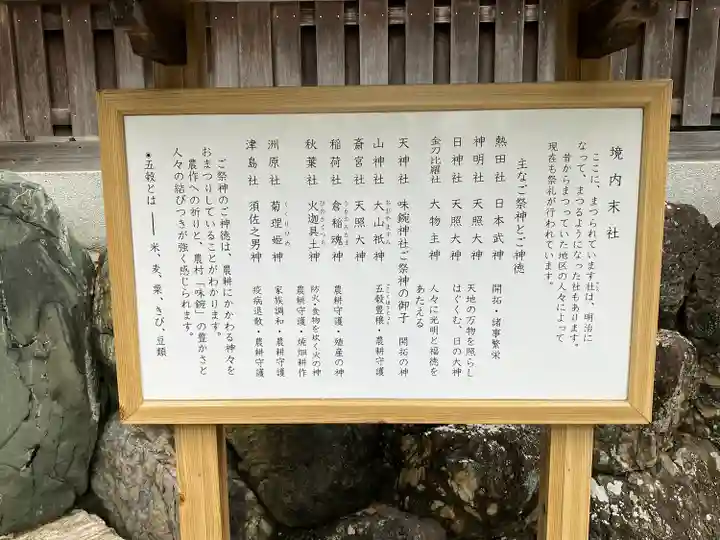 境内末社
ここに、まつられています社は、明治に
なって、まつるようになった社もあります。
昔からまつっていた地区の人々によって
現在も祭礼が行われています。
主なご祭神とご神徳
熱田社 日本武神 開拓・諸事繁栄
神明社 天照大神 天地の万物を照らし
日神社 天照大神 はぐくむ、日の大神
金刀比羅社 大物主神 人々に光明と福徳を
あたえる
天神社 味鋺神社ご祭神の御子 開拓の神
山神社 大山祇神 五穀豊穣・農耕守護
斎宮社 天照大神
稲荷社 倉稲魂神 農耕守護・殖産の神
秋葉社 火迦具土神 防火・食物を炊く火の神
農耕守護・焼畑耕作
洲原社 菊理姫神 家族調和・農耕守護
津島社 須佐之男神 疫病退散・農耕守護
ご祭神のご神徳は、農耕にかかわる神々を
おまつりしていることがわかります。
農作への祈りと、農村「味鋺」の豊かさと
人々の結びつきが強く感じられます。
◉五穀とは ― 米、麦、粟、きび、豆類